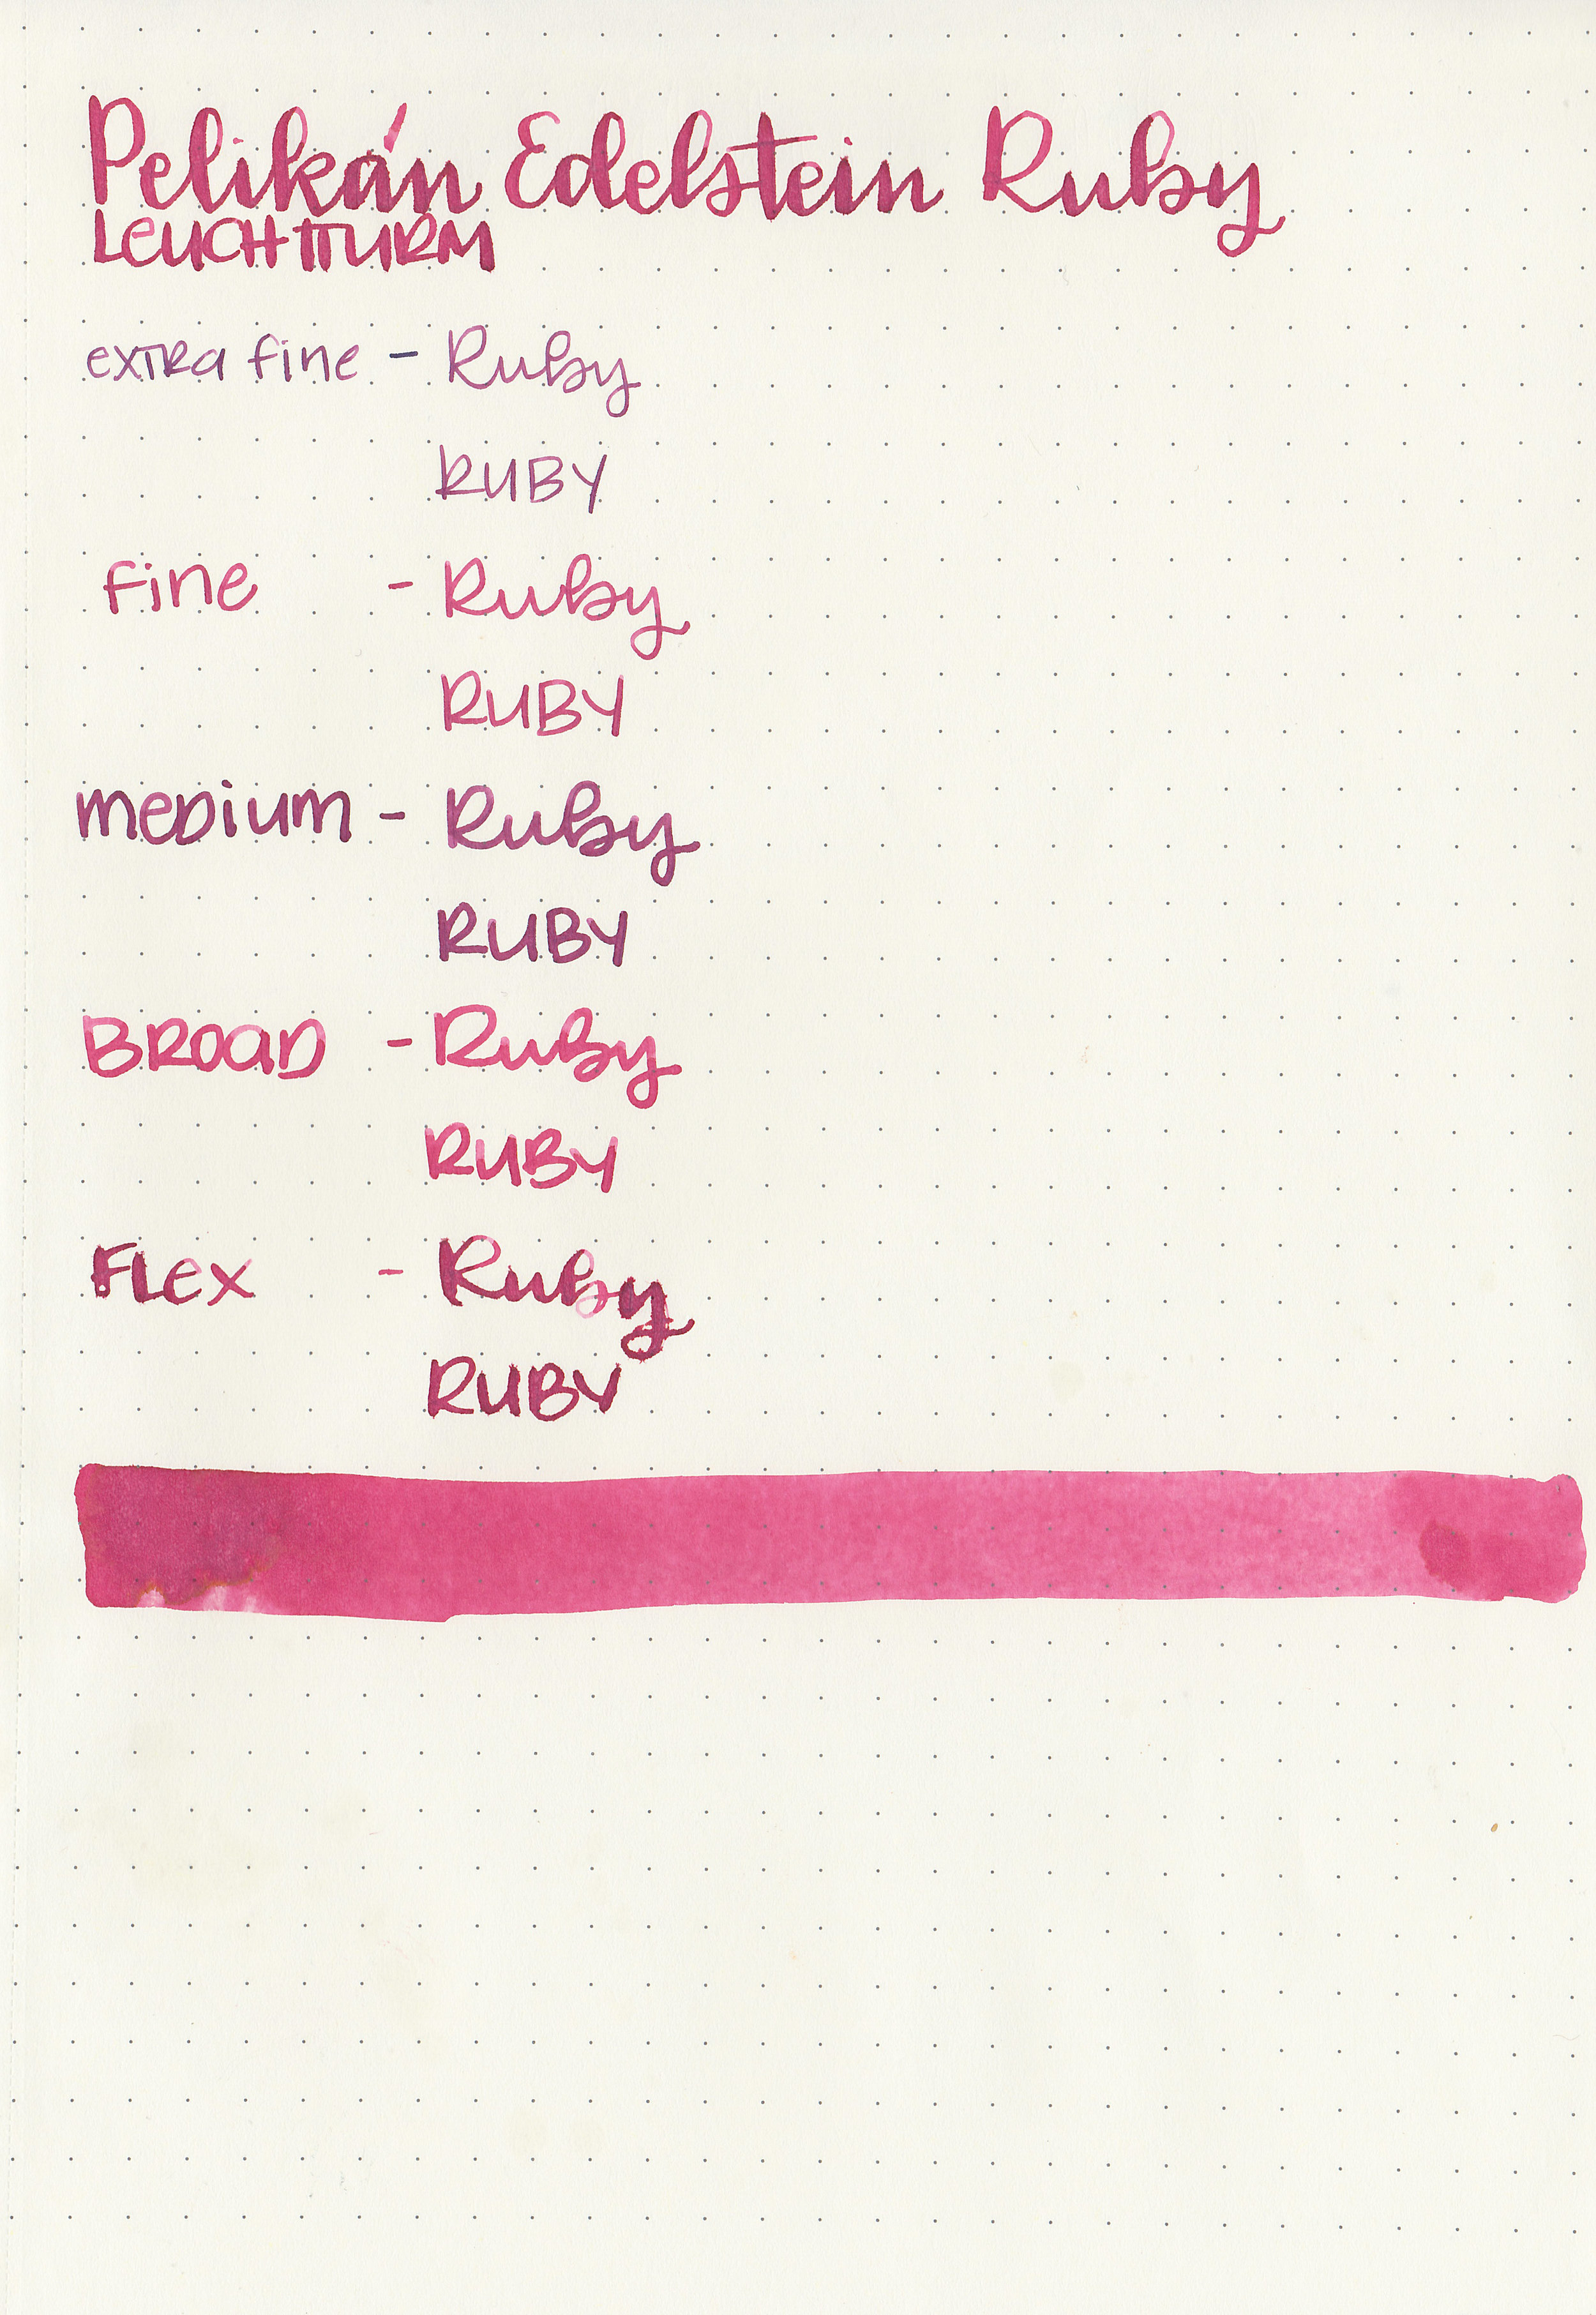 Pelikán Edelstein Ruby
LEUCHTTURM
exTRa fine - Ruby
RUBY
fine - Ruby
RUBY
meDium - Ruby
RUBY
BROaD - Ruby
RUBY
FLex - Ruby
RUBY